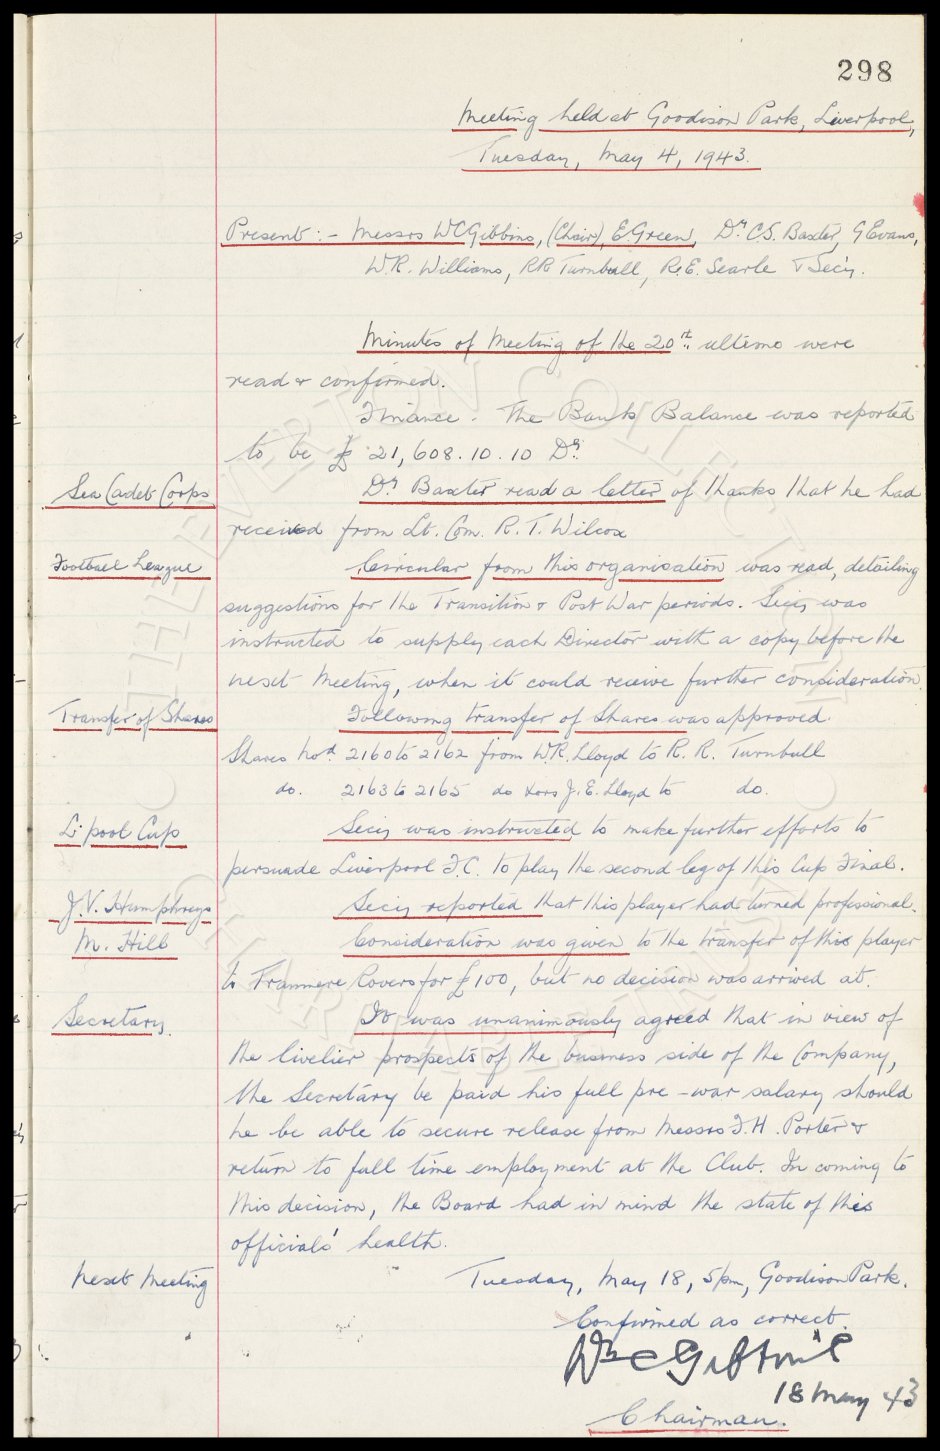 298
Meeting held at Goodison Park, Liverpool,
Tuesday, May 4, 1943.
Present:- Messrs WC Gibbins, (Chair), E. Green, Dr. C.S. Baxter, G Evans,
W.R. Williams, RR Turnbull, R.E. Searle & Secy.
Minutes of Meeting of the 20th ultimo were
read & confirmed.
Finance. The Bank Balance was reported
to be £ 21,608.10.10 Dr.
Sea Cadet Corps
Dr Baxter read a letter of thanks that he had
received from Lt. Com. R. T. Wilcox
Football League
Circular from this organisation was read, detailing
suggestions for the Transition & Post War periods. Secy was
instructed to supply each Director with a copy before the
next Meeting, when it could receive further consideration.
Transfer of Shares
Following transfer of Shares was approved.
Shares Nod. 2160 to 2162 from W.R. Lloyd to R. R. Turnbull
do. 2163 to 2165 do J.E. Lloyd to do.
L'pool Cup
Secy was instructed to make further efforts to
persuade Liverpool F.C. to play the second leg of this Cup Final.
J.V. Humphreys
Secy reported that this player had turned professional.
M. Hill
Consideration was given to the transfer of this player
to Tranmere Rovers for £100, but no decision was arrived at.
Secretary.
It was unanimously agreed that in view of
the livelier prospects of the business side of the Company,
the Secretary be paid his full pre-war salary should
he be able to secure release from Messrs F.H. Porter &
return to full time employment at the Club. In coming to
this decision, the Board had in mind the state of this
officials' health.
Next Meeting
Tuesday, May 18, 5pm, Goodison Park.
Confirmed as correct.
Wm C Gibbins
18 May 43
Chairman.
THE EVERTON COLLECTION
CHARITABLE TRUST